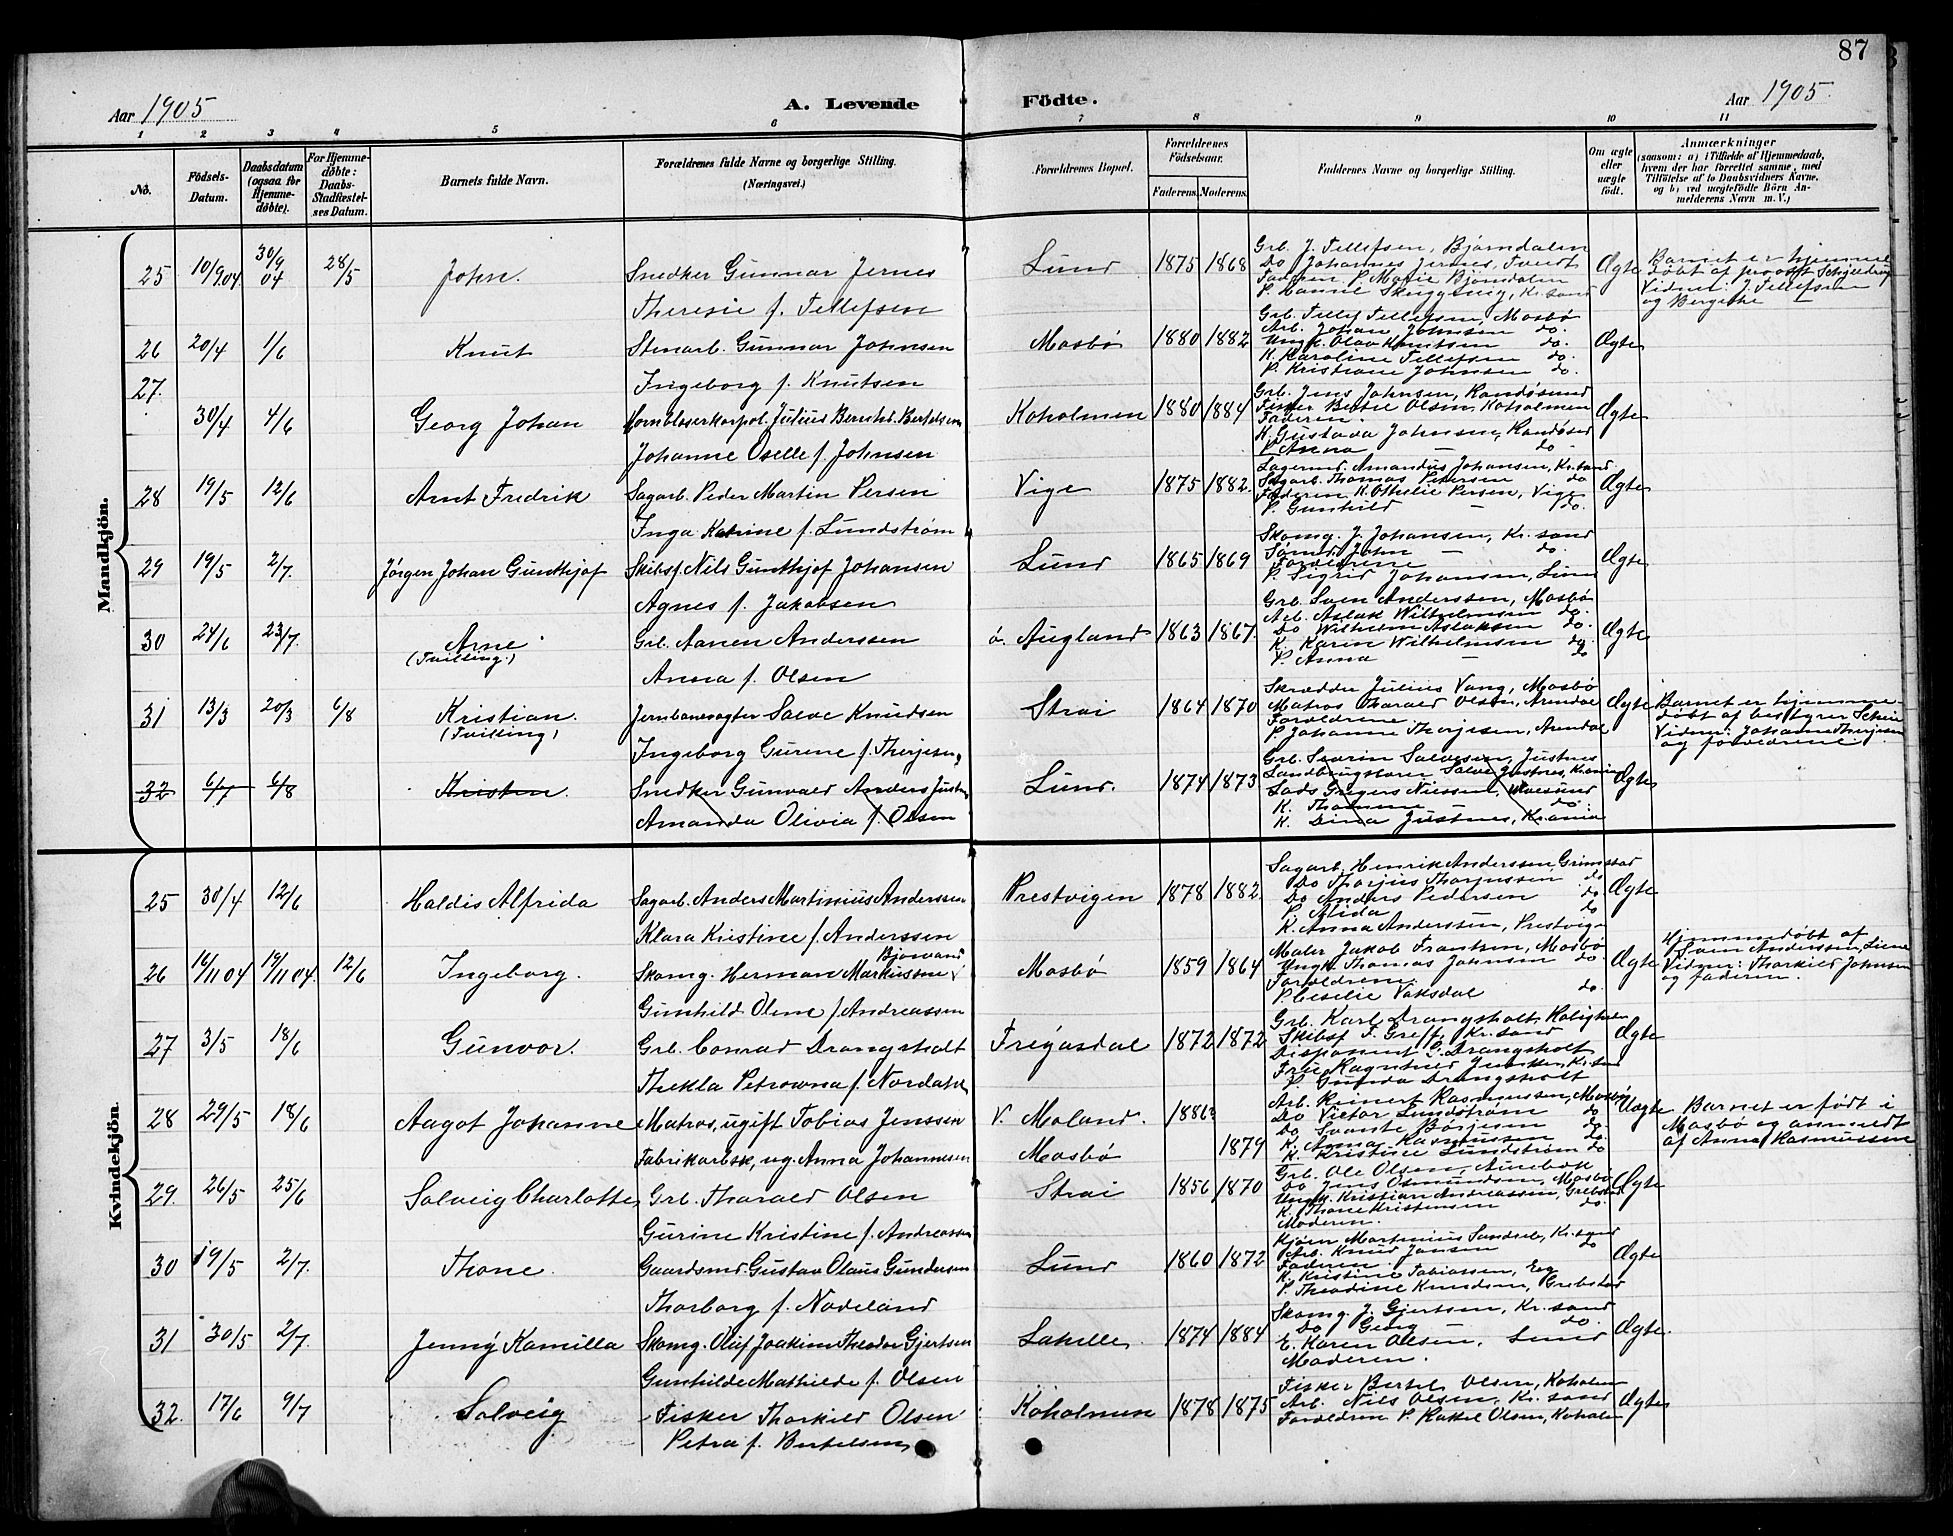 87
Aar 1905 A. Levende Födte. Aar 1905
1 2 3 4 5 6 7 8 9 10 11
No. Födsels-Datum. Daabsdatum (ogsaa for Hjemmedøbte). For Hjemmedøbte: Daabs-Stadfæstelses Datum. Barnets fulde Navn. Forældrenes fulde Navne og borgerlige Stilling. (Næringsvei.) Forældrenes Bopæl. Forældrenes Födselsaar. Faderens. Moderens. Faddernes Navne og borgerlige Stilling. Om ægte eller uægte födt. Anmærkninger (saasom: a) i Tilfælde af Hjemmedaab, hvem der har forrettet samme, med Tilföielse af to Daabsvidners Navne, og b) ved uægtefödte Börn Anmelderens Navn m. V.)
Mandkjön.
25 10/9 04 30/9 04 28/5 John. Snedker Gunnar Jernes
Theresie f. Tellefsen
Lund 1875 1868
Grb. J. Tellefsen, Bjørndalen
Do Johannes Jernes, Tveidt
Faderen P. Marie Bjørndalen
P. Hanne Skuggevig, Kr.sand
Ægte
Barnet er hjemme
døbt af provst Schjelderup
Vidner: J. Tellefsen
og Bergithe —
26 20/4 1/6 Knut Stenarb. Gunnar Johnsen
Ingeborg f. Knutsen
Mosbø 1880 1882
Grb. Tellef Tellefsen, Mosbø
Arb. Johan Johnsen do.
Ungk. Olav Knutsen do.
K. Karoline Tellefsen do.
P. Kristiane Johnsen do.
Ægte
27. 30/4 4/6 Georg Johan Hornblæserkorpol. Julius Bernth. Bertelsen
Johanne Oselle f. Johnsen
Koholmen 1880 1884
Grb. Jens Johnsen, Randøsund
Fisker Bertel Olsen, Koholmen
Faderen.
K. Gustava Johnsen, Randøsund
P. Anna — do
Ægte
28 19/5 12/6 Arnt Fredrik Sagarb. Peder Martin Persen
Inga Katrine f. Lundstrøm
Vige 1875 1882.
Lagermd. Amandus Johansen, Kr.sand
Sagarb. Thomas Petersen do
Faderen K. Othelie Persen, Vige
P. Gunhild — do.
Ægte
29 19/5 2/7. Jørgen Johan Gunthjof Skibsf. Nils Gunthjof Johansen
Agnes f. Jakobsen
Lund 1865 1869
Skomg. J. Johansen, Kr.sand
Sømd. John — do.
Forældrene
P. Sigrid Johansen, Lund
Ægte
30 24/6 23/7. Arne
(Tvilling.)
Grb. Aanen Anderssen
Anna f. Olsen
ø. Augland 1863 1867.
Grb. Sven Anderssen, Mosbø
Arb. Aslak Wilhelmsen do.
Do Wilhelm Aslaksen do.
K. Karin Wilhelmsen do
P. Anna — do
Ægte
31 13/3 20/3 6/8 Kristian.
(Tvilling)
Jernbanevogter Salve Knudsen
Ingeborg Gurine f. Therjesen
Strai 1864 1870
Skrædder Julius Vang, Mosbø
Matros Tharald Olsen, Arendal
Forældrene
P. Johanne Therjesen, Arendal
Ægte
Barnet er hjemme
døbt af bestyrer Scheie
Vidner: Johanne Therjesen
og forældrene
32 6/7 6/8 Kristen. Snedker Gunvald Anders Justnes
Amanda Olivia f. Olsen
Lund. 1874 1873
Grb. Severin Salvesen, Justnes
Landbrugslærer Salve Justnes, Krania
Lods Gregers Nielsen,
K. Thomine do.
K. Dina Justnes, Krania
Ægte
Kvindekjön.
25 30/4 12/6 Haldis Alfrida Sagarb. Anders Martinius Anderssen
Klara Kristine f. Anderssen
Prestvigen 1878 1882.
Sagarb. Henrik Anderssen, Grimstad
Do Thorjus Thorjussen do
Do Anders Pedersen do.
P. Alida do
K. Anna Anderssen, Prestvigen
Ægte
26 16/11 04 19/11 04. 12/6 Ingeborg. Skomg. Herman Markussen Bjørvand
Gunhild Oline f. Andreassen
Mosbø 1859 1864
Maler Jakob Frantsen, Mosbø
Ungk. Thomas Johnsen do.
Forældrene.
P. Cecilie Vaksdal do.
Ægte
Hjemmedøbt af
Sven Anderssen, Liene
Vidner: Thorkild Johnsen
og faderen.
27 3/5 18/6 Gunvor. Grb. Conrad Drangsholt
Thekla Petrowna f. Nordahl
Frigasdal 1872 1872
Grb. Karl Drangsholt,
Skibsf. F. Greff, Kr.sand
Disponent P. Drangsholt
Frue Ragnhild Kr.sand
P. Gunda Drangsholt
Ægte
28 29/5 18/6 Aagot Johanne Matros, ugift Tobias Jenssen
Fabrikarbsk, ug. Anna Johannesen
V. Moland. 1886
Mosbø 1879
Arb. Reinert Rasmussen, Mosbø
Do Victor Lundstrøm do
Do Svante Børjesen do
K. Anna Rasmussen do
K. Kristine Lundstrøm do
Uægte
Barnet er født i
Mosbø og anmeldt
af Anna Rasmussen
29. 26/5 25/6 Solveig Charlotte Grb. Tharald Olsen
Gurine Kristine f. Andreassen
Strai 1856 1870
Grb. Ole Olsen, Aurebæk
Do Jens Osmundsen, Mosbø
Ungk. Kristian Andreassen, Grebstad
K. Thone Kristensen do.
Moderen.
Ægte
30 19/5 2/7. Thone. Gaardsmd. Gustav Olaus Gundersen
Thorborg f. Nodeland
Lund 1860 1872
Kjørn. Martinius Sandsel, Kr.sand
Arb. Knud Jansen do
Faderen.
K. Kristine Tobiassen, Eeg
P. Theodine Knudsen, Grebstad
Ægte
31 30/5 2/7. Jenny Kamilla Skomg. Oluf Joakim Theodor Gjertsen
Gunhilde Mathilde f. Olsen
Lahelle 1874 1884
Skomg. J. Gjertsen, Kr.sand
Do Georg — do.
E. Karen Olsen, Lund
Moderen.
Ægte.
32. 17/6 9/7 Solveig Fisker Thorkild Olsen
Petra f. Bertelsen
Koholmen 1878 1875
Fisker Bertel Olsen, Koholmen
Arb. Nils Olsen, Kr.sand
Forældrene P. Rakel Olsen, Koholmen
Ægte